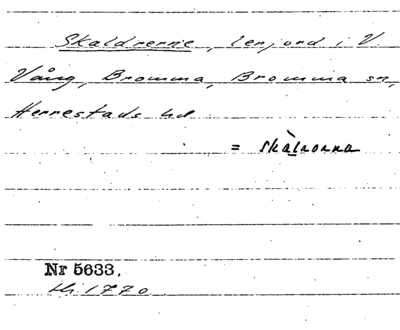 Skaldrenne, lenjord i V.
Vång, Bromma, Bromma sn,
Herrestads hd
= skàlronna
Nr 5633.
Hi. 1770.